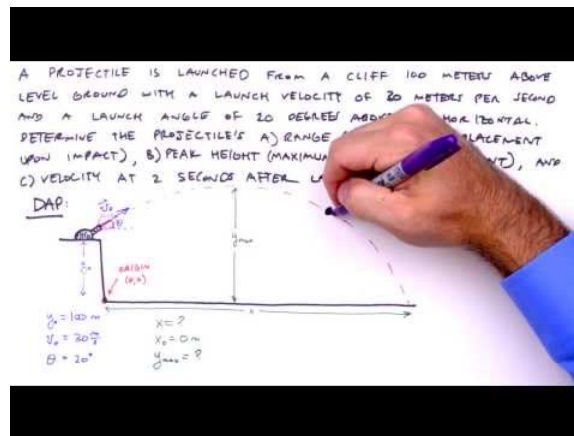 A PROJECTILE IS LAUNCHED FROM A CLIFF 100 METERS ABOVE
LEVEL GROUND WITH A LAUNCH VELOCITY OF 30 METERS PER SECOND
AND A LAUNCH ANGLE OF 20 DEGREES ABOVE HORIZONTAL.
DETERMINE THE PROJECTILE'S A) RANGE PLACEMENT
UPON IMPACT), B) PEAK HEIGHT (MAXIMUM ENT), AND
C) VELOCITY AT 2 SECONDS AFTER
DAP:
V₀
θ
y₀
ymax
ORIGIN
(0,0)
x
y₀ = 100 m
V₀ = 30 m/s
θ = 20°
x = ?
x₀ = 0 m
ymax = ?